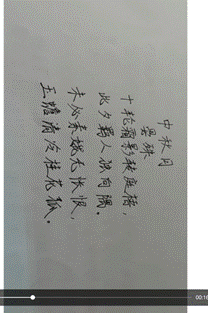 中秋月
晏殊
十轮霜影转庭梧,
此夕羁人独向隅。
未必素娥无怅恨,
玉蟾清冷桂花孤。